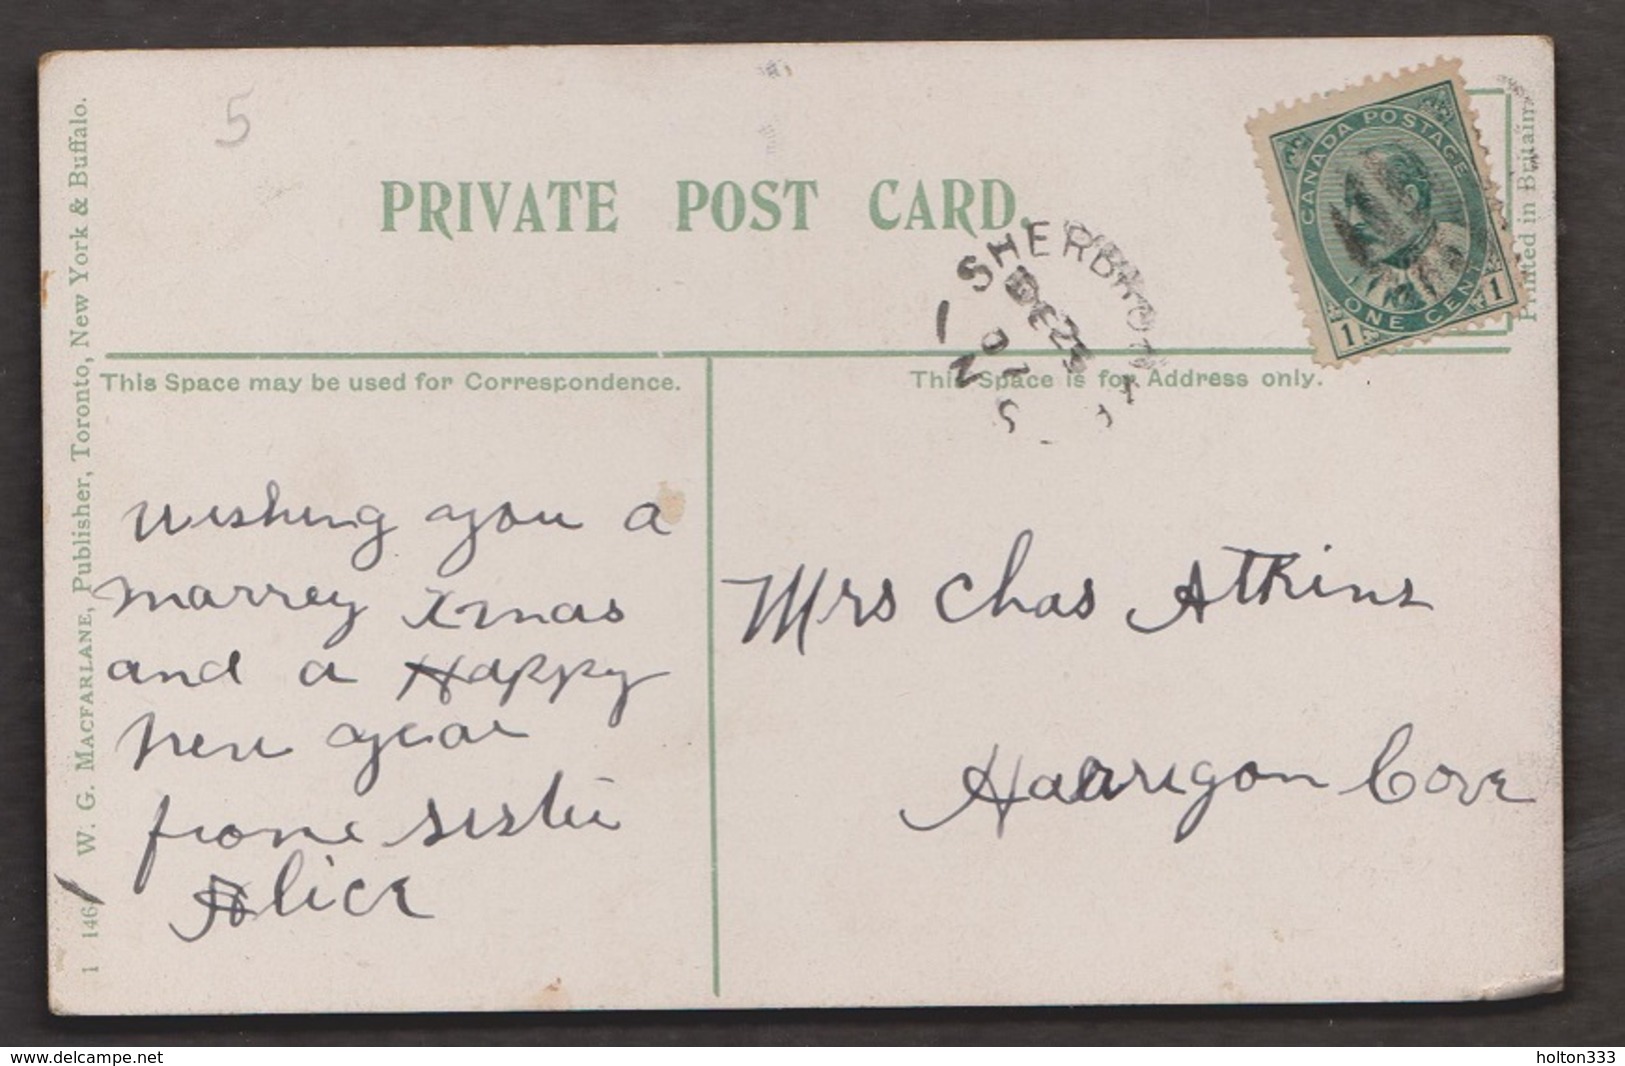 5
PRIVATE POST CARD.
CANADA POSTAGE
ONE CENT
1 1
Printed in Britain
SHERBROOKE
DE 25
07
N S
This Space may be used for Correspondence.
This Space is for Address only.
wishing you a
marrey Xmas
and a Happy
new year
frome sister
Alice
Mrs Chas Atkins
Harrigon Cove
1 146 W. G. MACFARLANE, Publisher, Toronto, New York & Buffalo.
www.delcampe.net
holton333